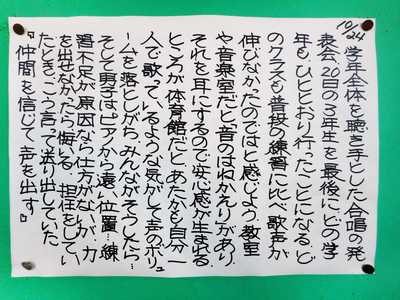 10/24
学年全体を聴き手とした合唱の発
表会、20日の3年生を最後にどの学
年も、ひととおり行ったことになる。ど
のクラスも普段の練習に比べ、歌声が
伸びなかったのではと感じよう。教室
や音楽室だと、音のはねかえりがあり、
それを耳にするので安心感が生まれる。
ところが体育館だと、あたかも自分一
人で歌っているような気がして声のボリュ
ームを落としがち。みんながそうしたら…
そして男子はピアノから遠い位置…練
習不足が原因なら仕方がないが、力
を出せなかったら悔しい。担任をしてい
たとき、こう言って送り出していた。
『仲間を信じて、声を出す』